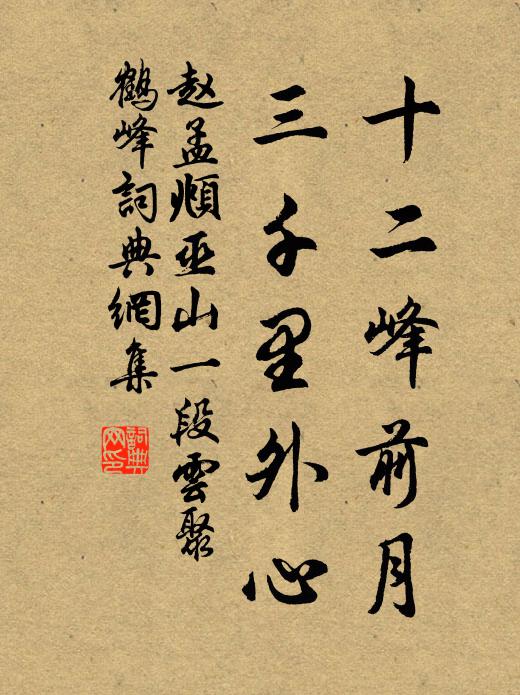 十二峰前月
三千里外心
赵孟頫巫山一段雲聚
鶴峰詞典網集
詞典网印